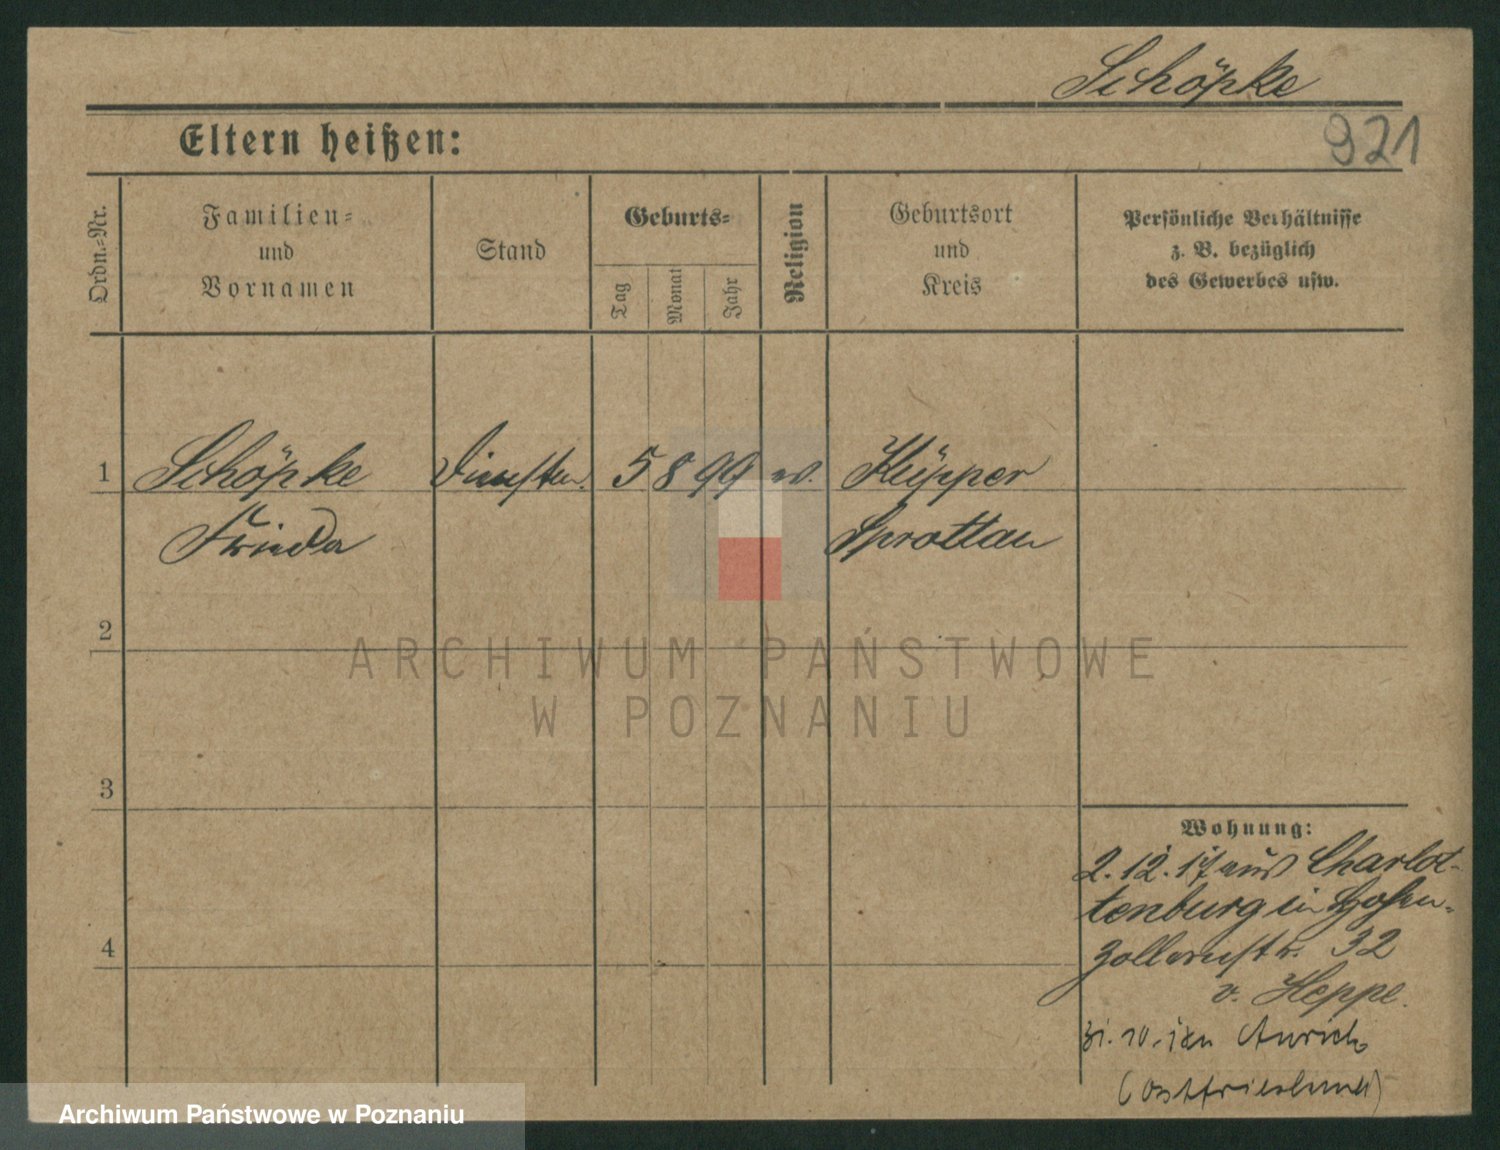 Schöpke
921
Eltern heißen:
Ordn.-Nr.
Familien-
und
Vornamen
Stand
Geburts-
Tag
Monat
Jahr
Religion
Geburtsort
und
Kreis
Persönliche Verhältnisse
z. B. bezüglich
des Gewerbes usw.
1 Schöpke 5 8 99 Küpper
Frieda Sprottau
2
3
4
Wohnung:
2.12.17 aus Charlot-
tenburg in Hohen-
zollernstr. 32
v. Heppe.
31.10. Aurich
(Ostfriesland)
ARCHIWUM PAŃSTWOWE
W POZNANIU
Archiwum Państwowe w Poznaniu